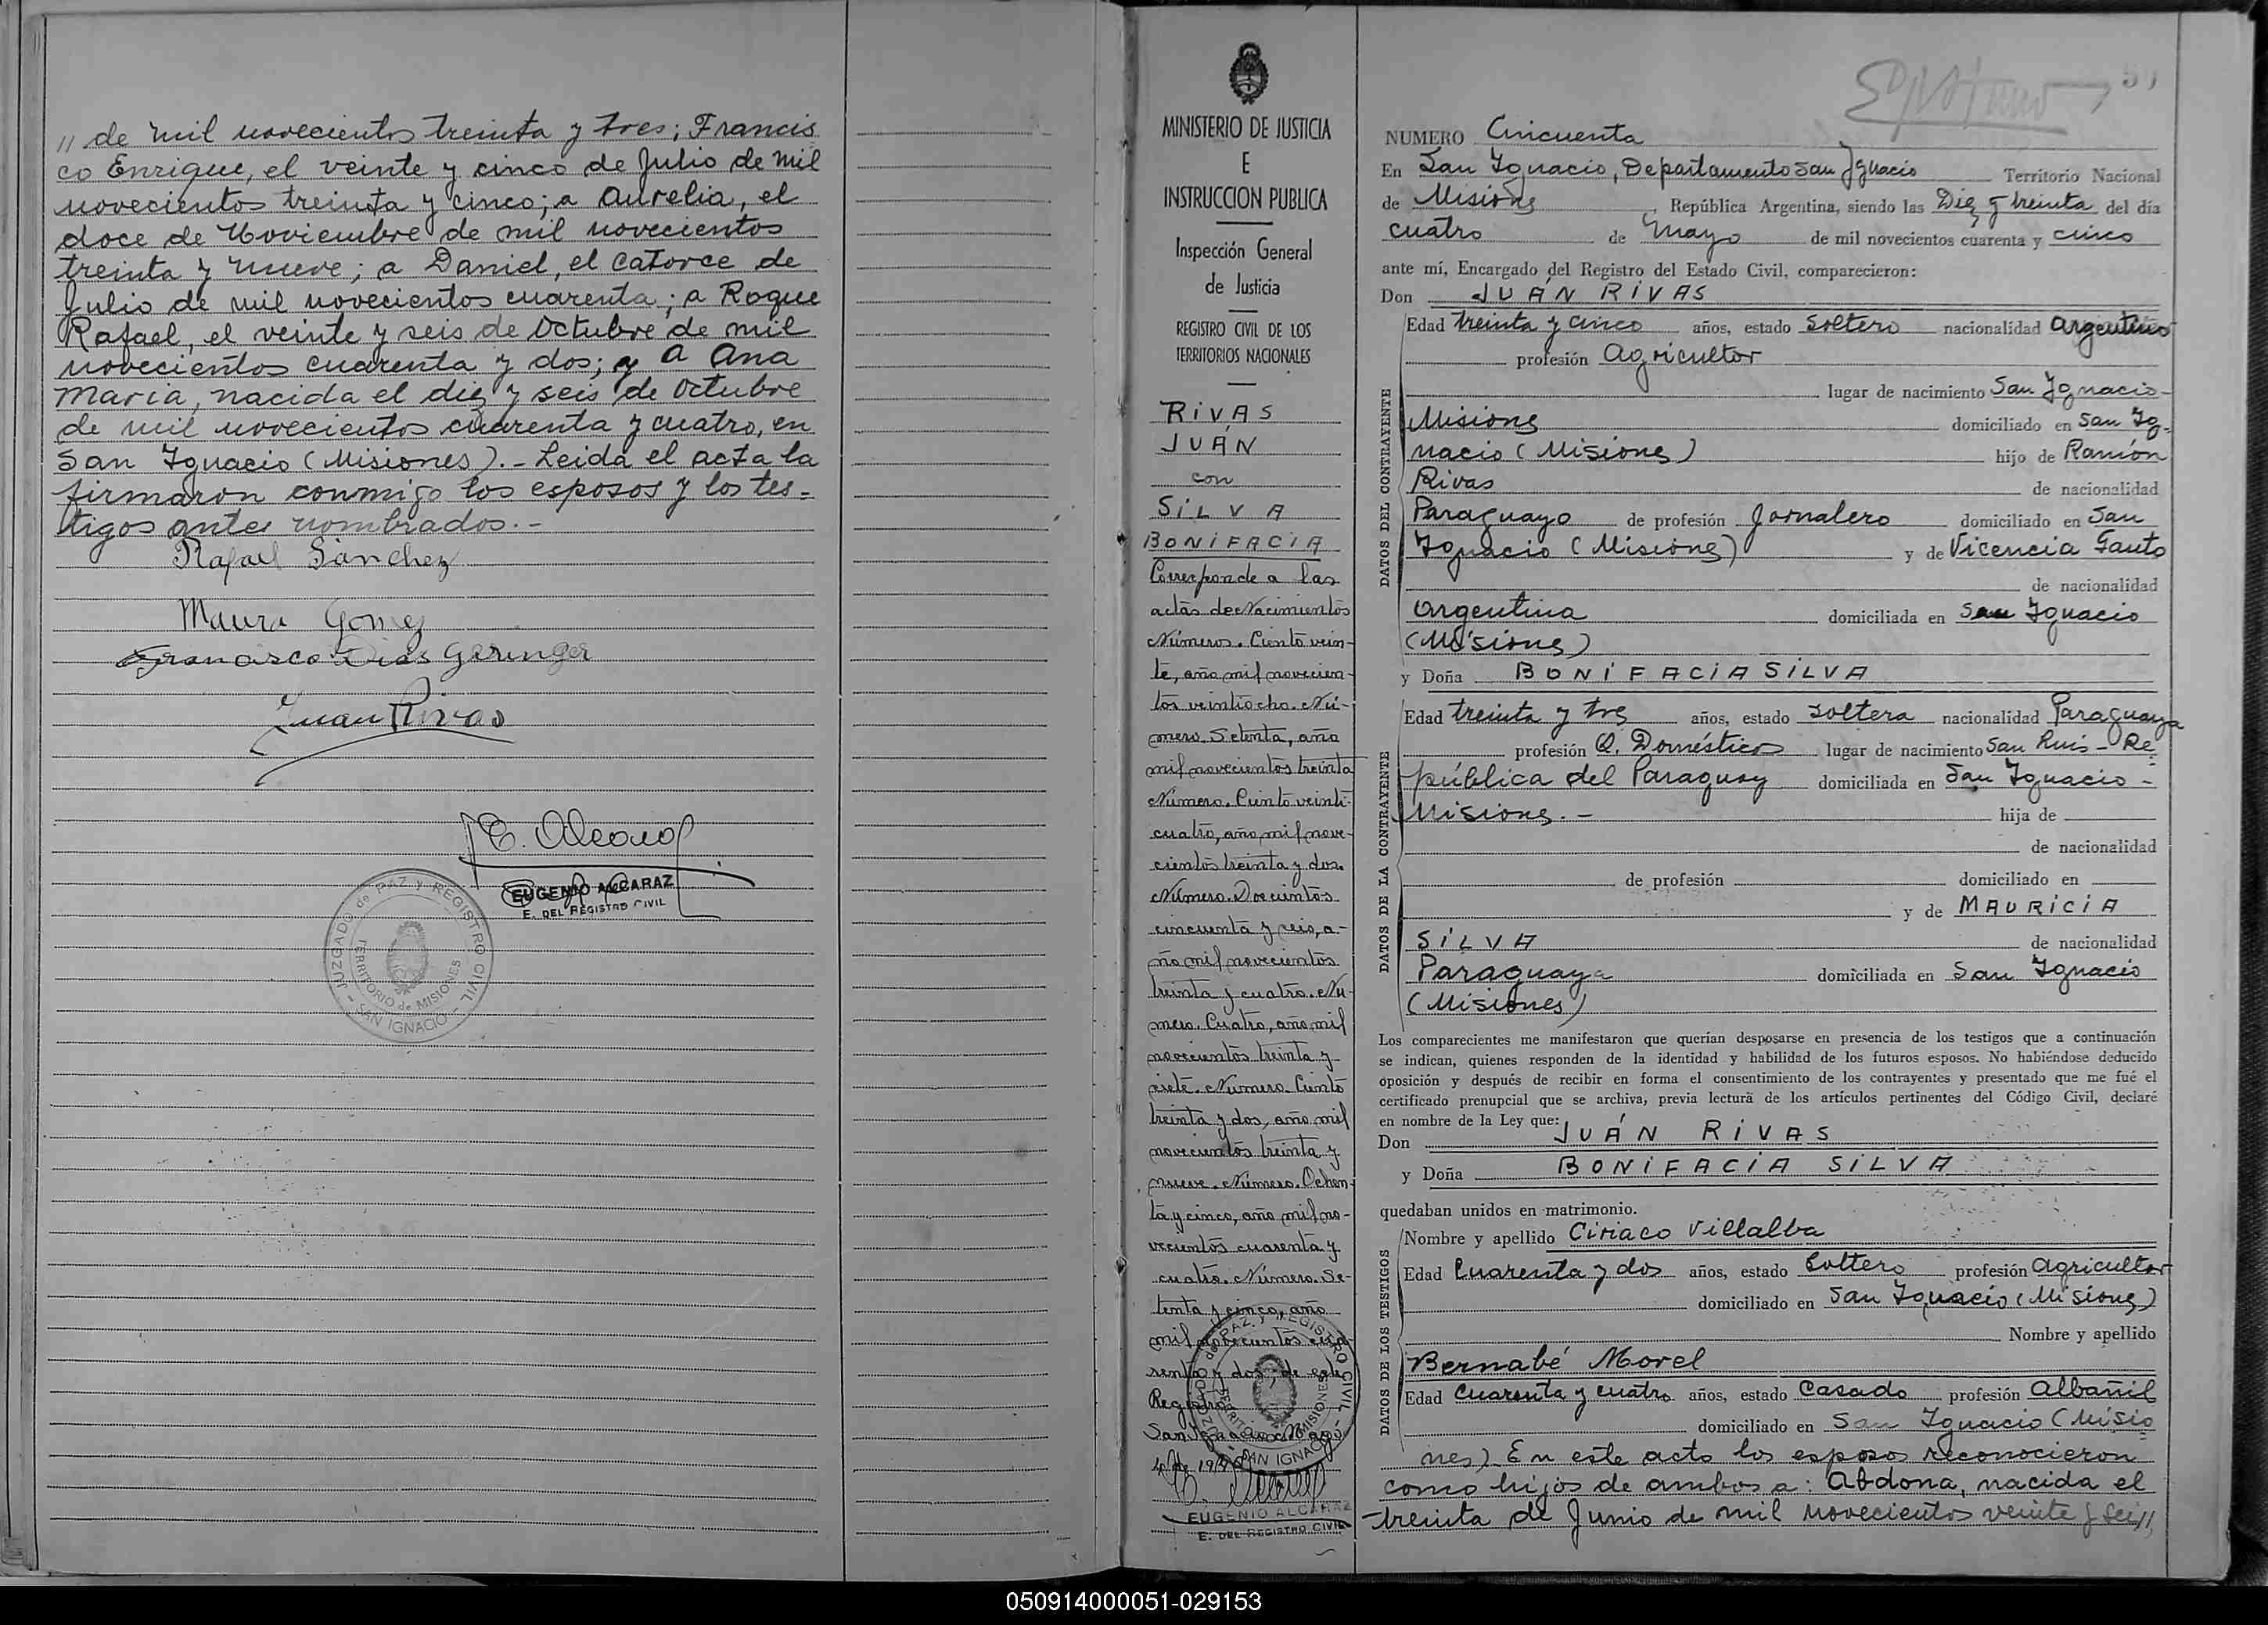 // de mil novecientos treinta y tres; Francis
co Enrique, el veinte y cinco de Julio de mil
novecientos treinta y cinco; a Aurelia, el
doce de Noviembre de mil novecientos
treinta y nueve; a Daniel, el catorce de
Julio de mil novecientos cuarenta; a Roque
Rafael, el veinte y seis de Octubre de mil
novecientos cuarenta y dos; y a Ana
Maria, nacida el diez y seis de Octubre
de mil novecientos cuarenta y cuatro, en
San Ignacio (Misiones).- Leida el acta la
firmaron conmigo los esposos y los tes=
tigos antes nombrados.-
Rafael Sánchez
Maura Gomez
Francisco Dias Geringer
Juan Rivas
EUGENIO ALCARAZ
E. DEL REGISTRO CIVIL
JUZGADO de PAZ y REGISTRO CIVIL - SAN IGNACIO -
TERRITORIO de MISIONES
MINISTERIO DE JUSTICIA
E
INSTRUCCION PUBLICA
Inspección General
de Justicia
REGISTRO CIVIL DE LOS
TERRITORIOS NACIONALES
RIVAS
JUÁN
con
SILVA
BONIFACIA
Corresponde a las
actas de Nacimientos
Números. Ciento vein-
te, año mil novecien-
tos veintiocho. Nú-
mero. Setenta, año
mil novecientos treinta
Número. Ciento veinti-
cuatro, año mil nove-
cientos treinta y dos.
Número. Doscientos
cincuenta y seis, a-
ño mil novecientos
treinta y cuatro. Nú-
mero. Cuatro, año mil
novecientos treinta y
siete. Número. Ciento
treinta y dos, año mil
novecientos treinta y
nueve. Número. Ochen-
ta y cinco, año mil no-
vecientos cuarenta y
cuatro. Número. Se-
tenta y cinco, año
mil novecientos cua-
renta y dos, de este
Registro.
San Ignacio, Mayo
4 de 19
EUGENIO ALCARAZ
E. DEL REGISTRO CIVIL
NUMERO Cincuenta
En San Ignacio, Departamento San Ignacio Territorio Nacional
de Misiones, República Argentina, siendo las Diez y treinta del día
cuatro de Mayo de mil novecientos cuarenta y cinco
ante mí, Encargado del Registro del Estado Civil, comparecieron:
Don JUÁN RIVAS
DATOS DEL CONTRAYENTE
Edad treinta y cinco años, estado soltero nacionalidad argentino
profesión Agricultor
lugar de nacimiento San Ignacio-
Misiones domiciliado en San Ig-
nacio (Misiones) hijo de Ramón
Rivas de nacionalidad
Paraguayo de profesión Jornalero domiciliado en San
Ignacio (Misiones) y de Vicencia
de nacionalidad
argentina domiciliada en San Ignacio
(Misiones)
y Doña BONIFACIA SILVA
DATOS DE LA CONTRAYENTE
Edad treinta y tres años, estado soltera nacionalidad Paraguaya
profesión Q. Domésticos lugar de nacimiento San Ruis - Re
pública del Paraguay domiciliada en San Ignacio -
Misiones.- hija de
de nacionalidad
de profesión domiciliado en
y de MAURICIA
SILVA de nacionalidad
Paraguaya domiciliada en San Ignacio
(Misiones)
Los comparecientes me manifestaron que querían desposarse en presencia de los testigos que a continuación
se indican, quienes responden de la identidad y habilidad de los futuros esposos. No habiéndose deducido
oposición y después de recibir en forma el consentimiento de los contrayentes y presentado que me fué el
certificado prenupcial que se archiva, previa lectura de los artículos pertinentes del Código Civil, declaré
en nombre de la Ley que:
Don JUÁN RIVAS
y Doña BONIFACIA SILVA
quedaban unidos en matrimonio.
DATOS DE LOS TESTIGOS
Nombre y apellido Ciriaco Villalba
Edad Cuarenta y dos años, estado Soltero profesión Agricultor
domiciliado en San Ignacio (Misiones)
Nombre y apellido
Bernabé Morel
Edad Cuarenta y cuatro años, estado Casado profesión Albañil
domiciliado en San Ignacio (Misio
nes) En este acto los esposo reconocieron
como hijos de ambos a: Abdona, nacida el
treinta de Junio de mil novecientos veinte y seis//
050914000051-029153